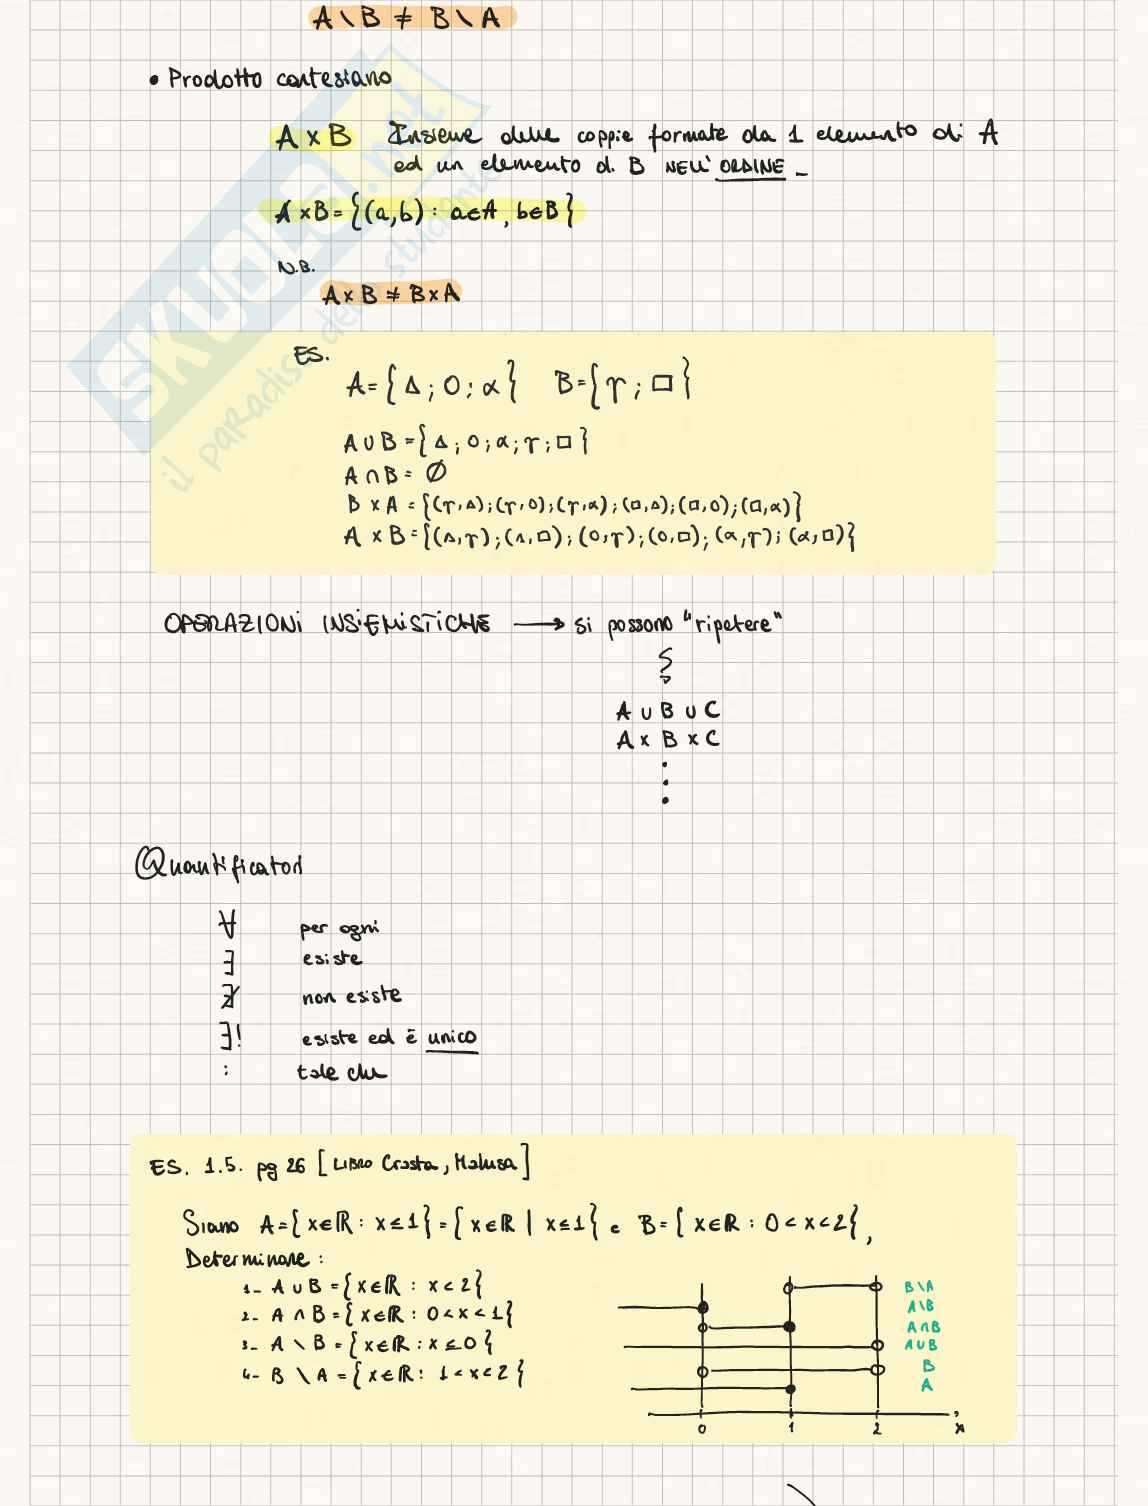 A \ B ≠ B \ A
• Prodotto cartesiano
A × B Insieme delle coppie formate da 1 elemento di A
ed un elemento di B NELL'ORDINE _
A × B = {(a,b) : a∈A, b∈B}
N.B.
A × B ≠ B × A
ES.
A = {Δ ; O ; α} B = {γ ; □}
A ∪ B = {Δ ; O ; α ; γ ; □}
A ∩ B = ∅
B × A = {(γ,Δ);(γ,O);(γ,α);(□,Δ);(□,O);(□,α)}
A × B = {(Δ,γ);(Δ,□);(O,γ);(O,□);(α,γ);(α,□)}
OPERAZIONI INSIEMISTICHE → si possono "ripetere"
A ∪ B ∪ C
A × B × C
Quantificatori
∀ per ogni
∃ esiste
∄ non esiste
∃! esiste ed è unico
: tale che
ES. 1.5. pg 26 [LIBRO Crasta, Malusa]
Siano A = {x∈ℝ : x ≤ 1} = {x∈ℝ | x ≤ 1} e B = {x∈ℝ : 0 < x < 2},
Determinare :
1- A ∪ B = {x∈ℝ : x < 2}
2- A ∩ B = {x∈ℝ : 0 < x < 1}
3- A \ B = {x∈ℝ : x ≤ 0}
4- B \ A = {x∈ℝ : 1 < x < 2}
B\A
A\B
A∩B
A∪B
B
A
0 1 2 x
SKUOLA.net
il paradiso dello studente